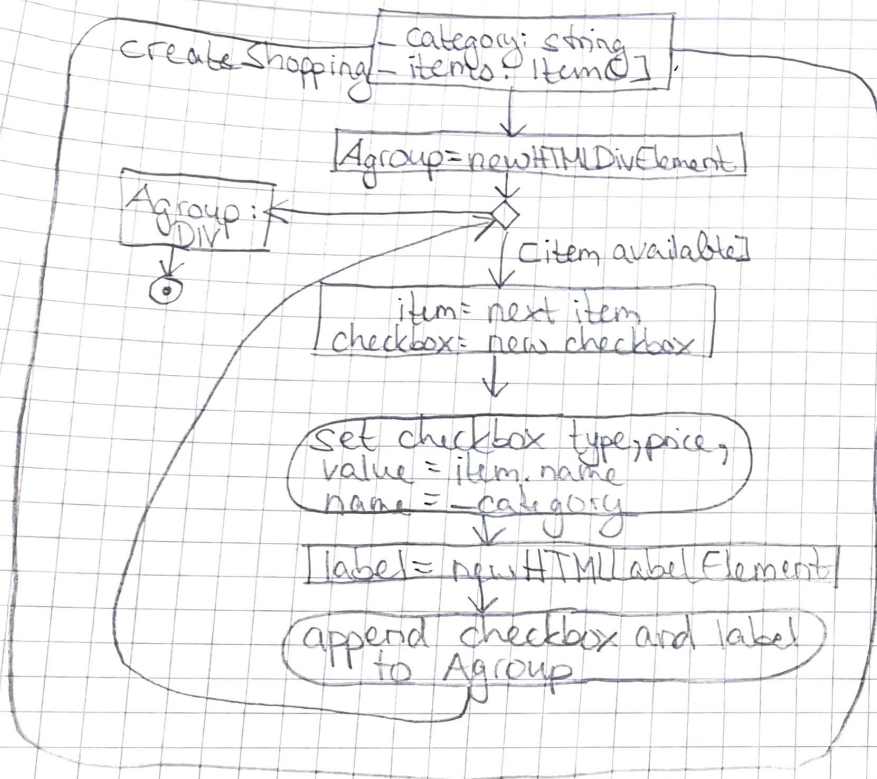 _ category: string
createShopping
_ items: Item[]
Agroup=newHTMLDivElement
Agroup:
DIV
[item available]
item= next item
checkbox= new checkbox
set checkbox type,price,
value = item.name
name = _category
label= newHTMLLabelElement
append checkbox and label
to Agroup